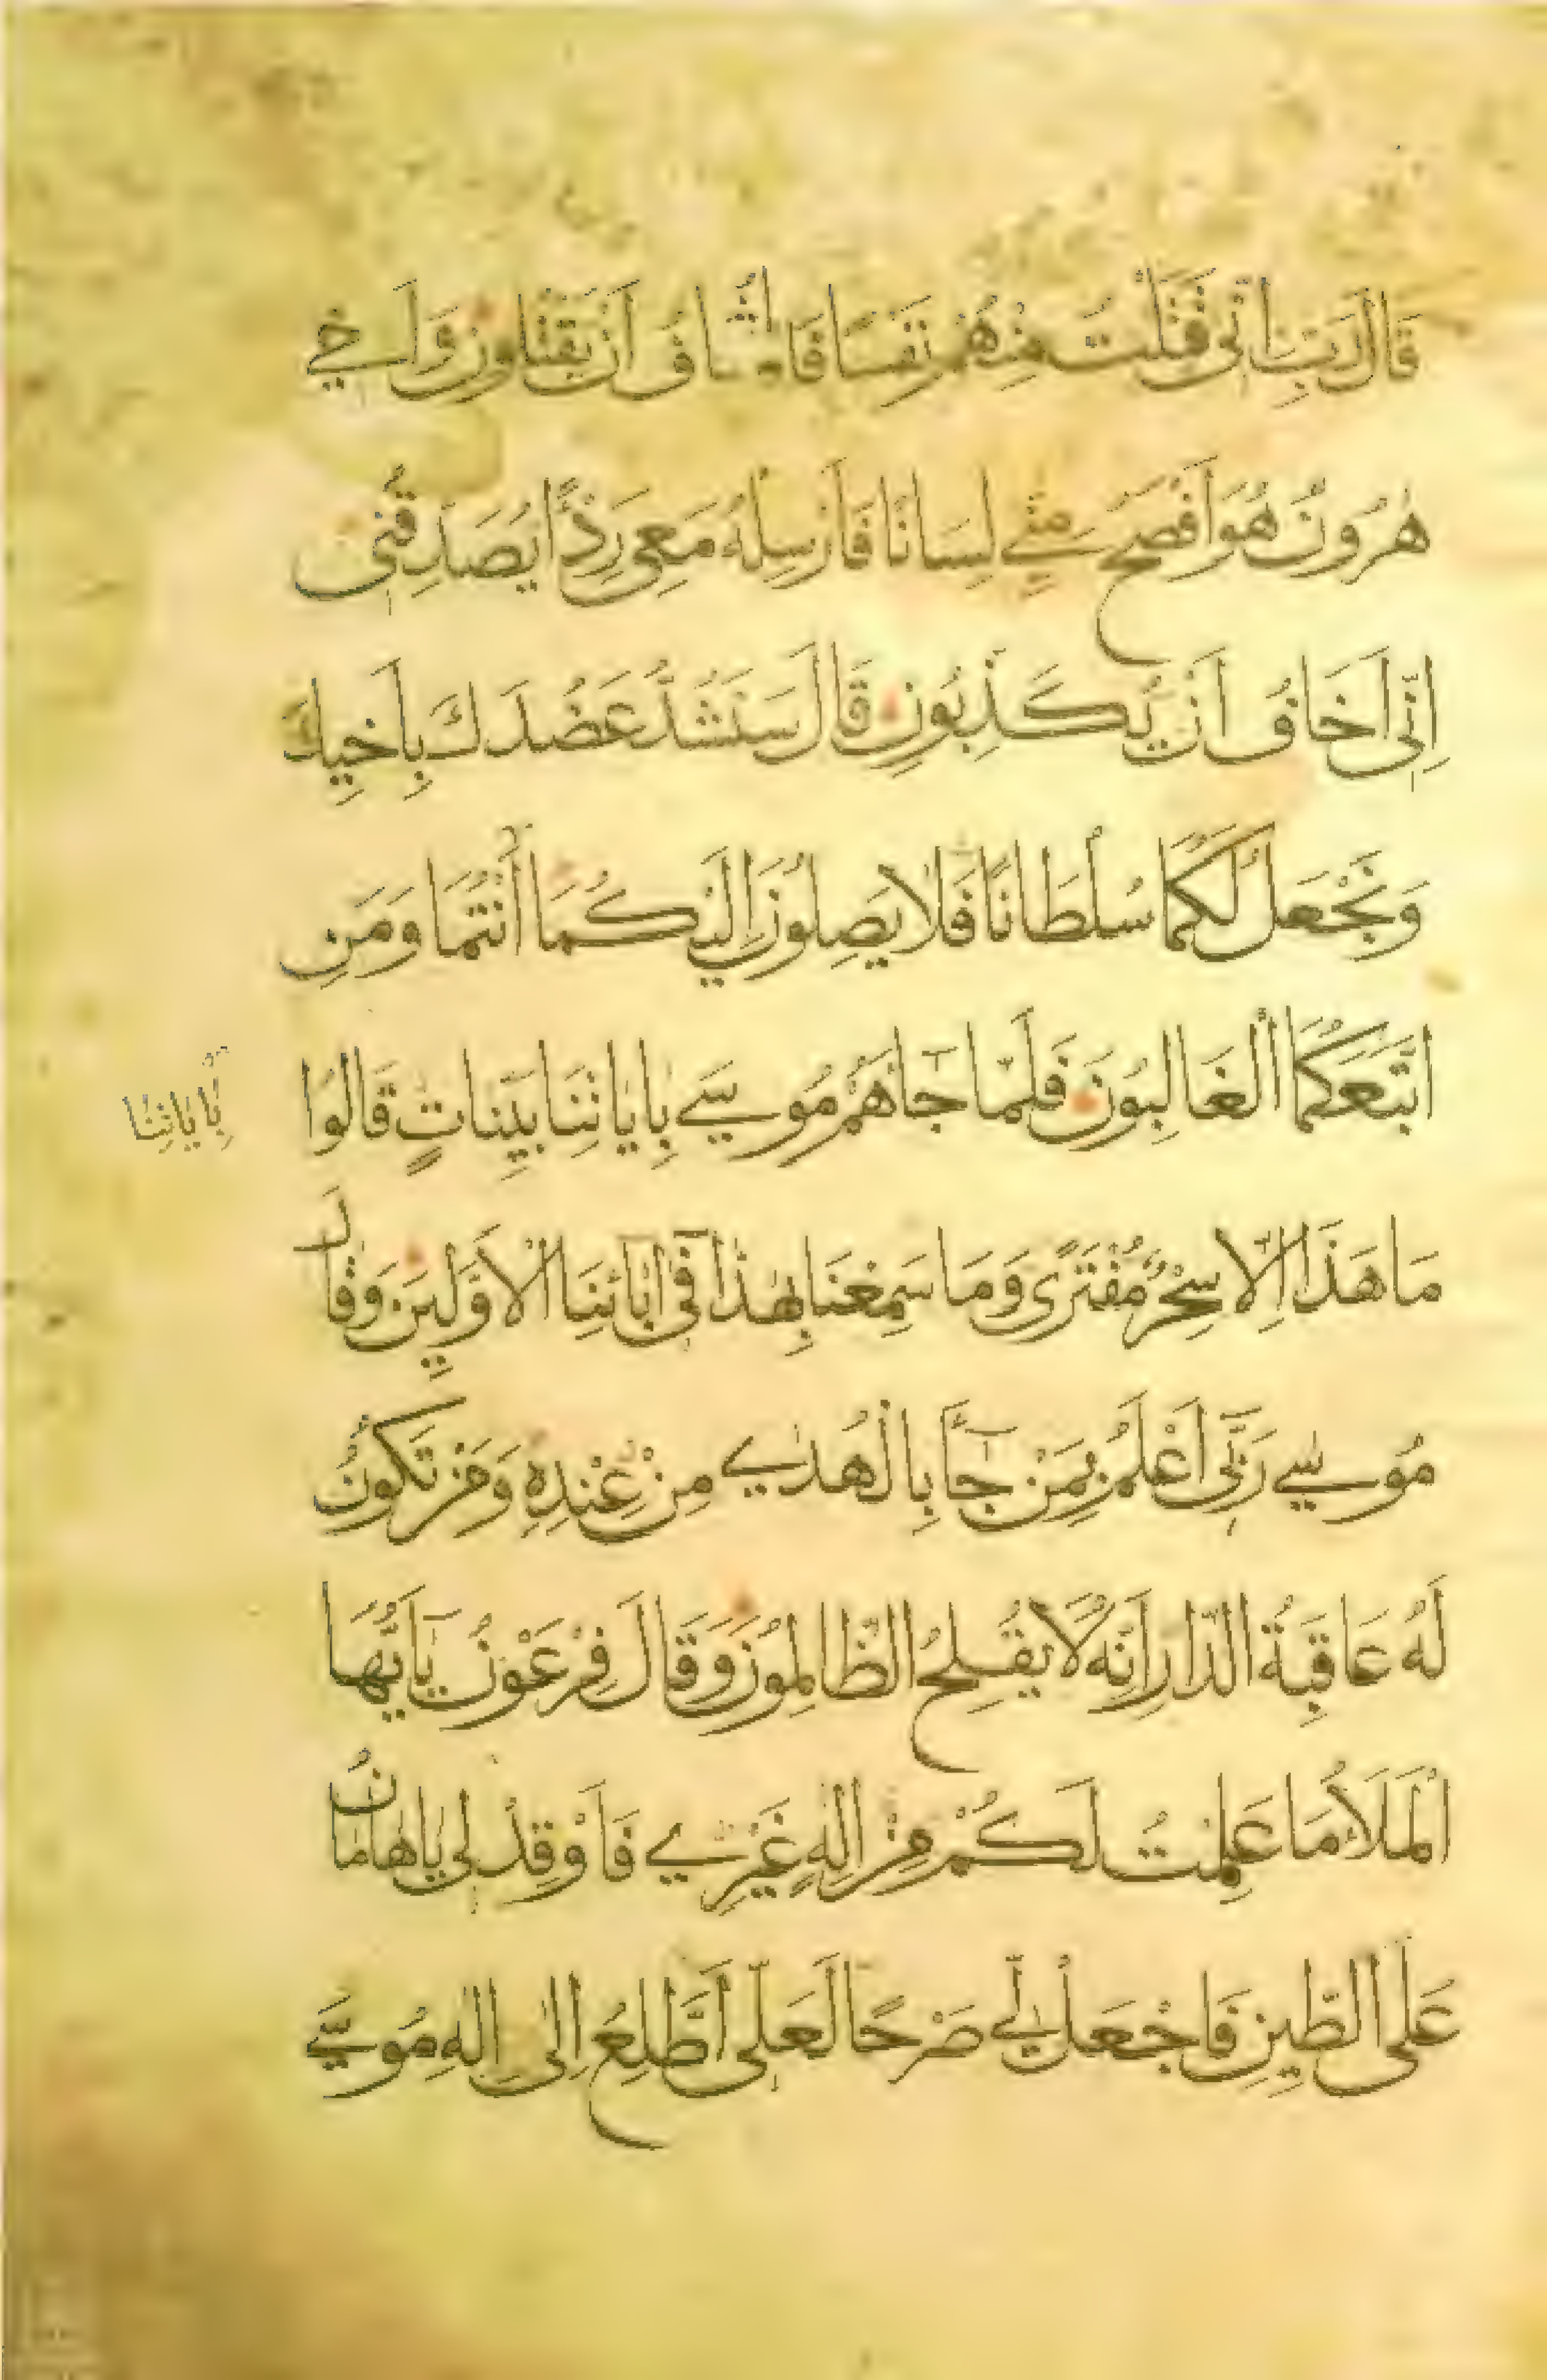 قَالَ رَبِّ اِنّى قَتَلْتُ مِنْهُمْ نَفْسًا فَاَخَافُ اَنْ يَقْتُلُونِ وَاَخِي
هٰرُونُ هُوَ اَفْصَحُ مِنّي لِسَانًا فَاَرْسِلْهُ مَعِى رِدْءًا يُصَدِّقُنِى
اِنِّى اَخَافُ اَنْ يُكَذِّبُونِ قَالَ سَنَشُدُّ عَضُدَكَ بِاَخِيكَ
وَنَجْعَلُ لَكُمَا سُلْطَانًا فَلَا يَصِلُونَ اِلَيْكُمَا اَنْتُمَا وَمَنِ
اتَّبَعَكُمَا الْغَالِبُونَ فَلَمّا جَاۤءَهُمْ مُوسٰي بِاٰيَاتِنَا بَيِّنَاتٍ قَالُوا
بِاٰيَاتِنَا
مَا هَذَا اِلَّا سِحْرٌ مُفْتَرًى وَمَا سَمِعْنَا بِهٰذَا فِى اٰبَاۤئِنَا الْاَوَّلِينَ وَقَالَ
مُوسٰي رَبِّى اَعْلَمُ بِمَنْ جَاۤءَ بِالْهُدٰي مِنْ عِنْدِهِ وَمَنْ تَكُونُ
لَهُ عَاقِبَةُ الدَّارِ اِنَّهُ لَا يُفْلِحُ الظَّالِمُونَ وَقَالَ فِرْعَوْنُ يَاۤ اَيُّهَا
الْمَلَأُ مَا عَلِمْتُ لَكُمْ مِنْ اِلٰهٍ غَيْرِي فَاَوْقِدْ لِى يَا هَامَانُ
عَلَى الطِّينِ فَاجْعَلْ لِي صَرْحًا لَعَلّى اَطَّلِعُ اِلٰى اِلٰهِ مُوسٰي